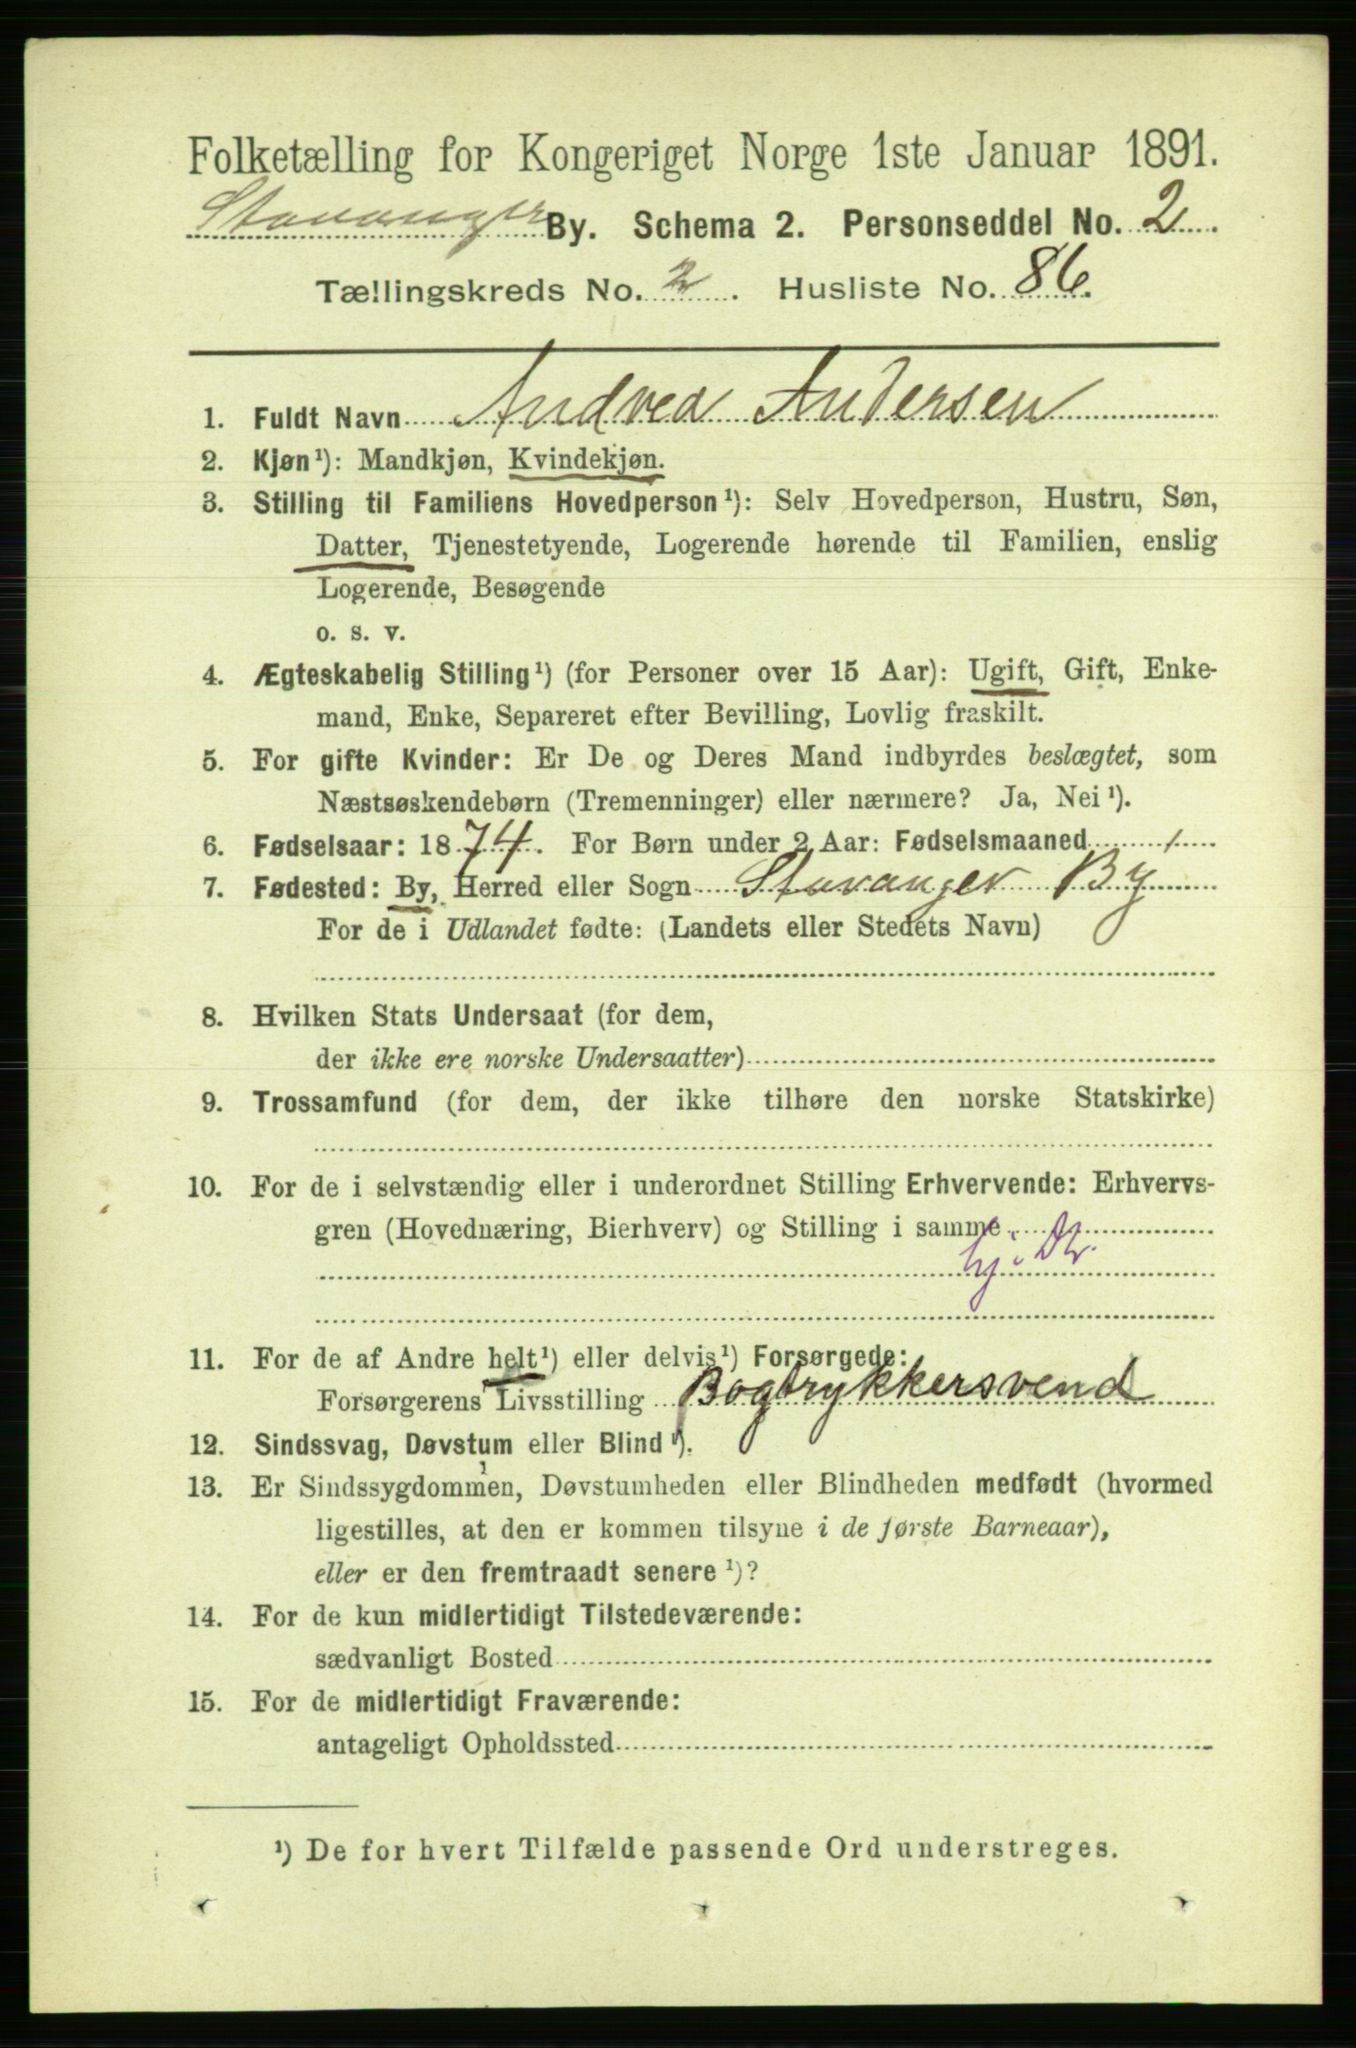 Folketælling for Kongeriget Norge 1ste Januar 1891.
Stavanger By. Schema 2. Personseddel No. 2.
Tællingskreds No. 2. Husliste No. 86.
1. Fuldt Navn Andrea Andersen
2. Kjøn¹): Mandkjøn, Kvindekjøn.
3. Stilling til Familiens Hovedperson¹): Selv Hovedperson, Hustru, Søn,
Datter, Tjenestetyende, Logerende hørende til Familien, enslig
Logerende, Besøgende
o. s. v.
4. Ægteskabelig Stilling¹) (for Personer over 15 Aar): Ugift, Gift, Enke-
mand, Enke, Separeret efter Bevilling, Lovlig fraskilt.
5. For gifte Kvinder: Er De og Deres Mand indbyrdes beslægtet, som
Næstsøskendebørn (Tremenninger) eller nærmere? Ja, Nei¹).
6. Fødselsaar: 1874. For Børn under 2 Aar: Fødselsmaaned
7. Fødested: By, Herred eller Sogn Stavanger By
For de i Udlandet fødte: (Landets eller Stedets Navn)
8. Hvilken Stats Undersaat (for dem,
der ikke ere norske Undersaatter)
9. Trossamfund (for dem, der ikke tilhøre den norske Statskirke)
10. For de i selvstændig eller i underordnet Stilling Erhvervende: Erhvervs-
gren (Hovednæring, Bierhverv) og Stilling i samme
hj. Dt.
11. For de af Andre helt¹) eller delvis¹) Forsørgede:
Forsørgerens Livsstilling Bogtrykkersvend
12. Sindssvag, Døvstum eller Blind¹).
13. Er Sindssygdommen, Døvstumheden eller Blindheden medfødt (hvormed
ligestilles, at den er kommen tilsyne i de første Barneaar),
eller er den fremtraadt senere¹)?
14. For de kun midlertidigt Tilstedeværende:
sædvanligt Bosted
15. For de midlertidigt Fraværende:
antageligt Opholdssted
¹) De for hvert Tilfælde passende Ord understreges.